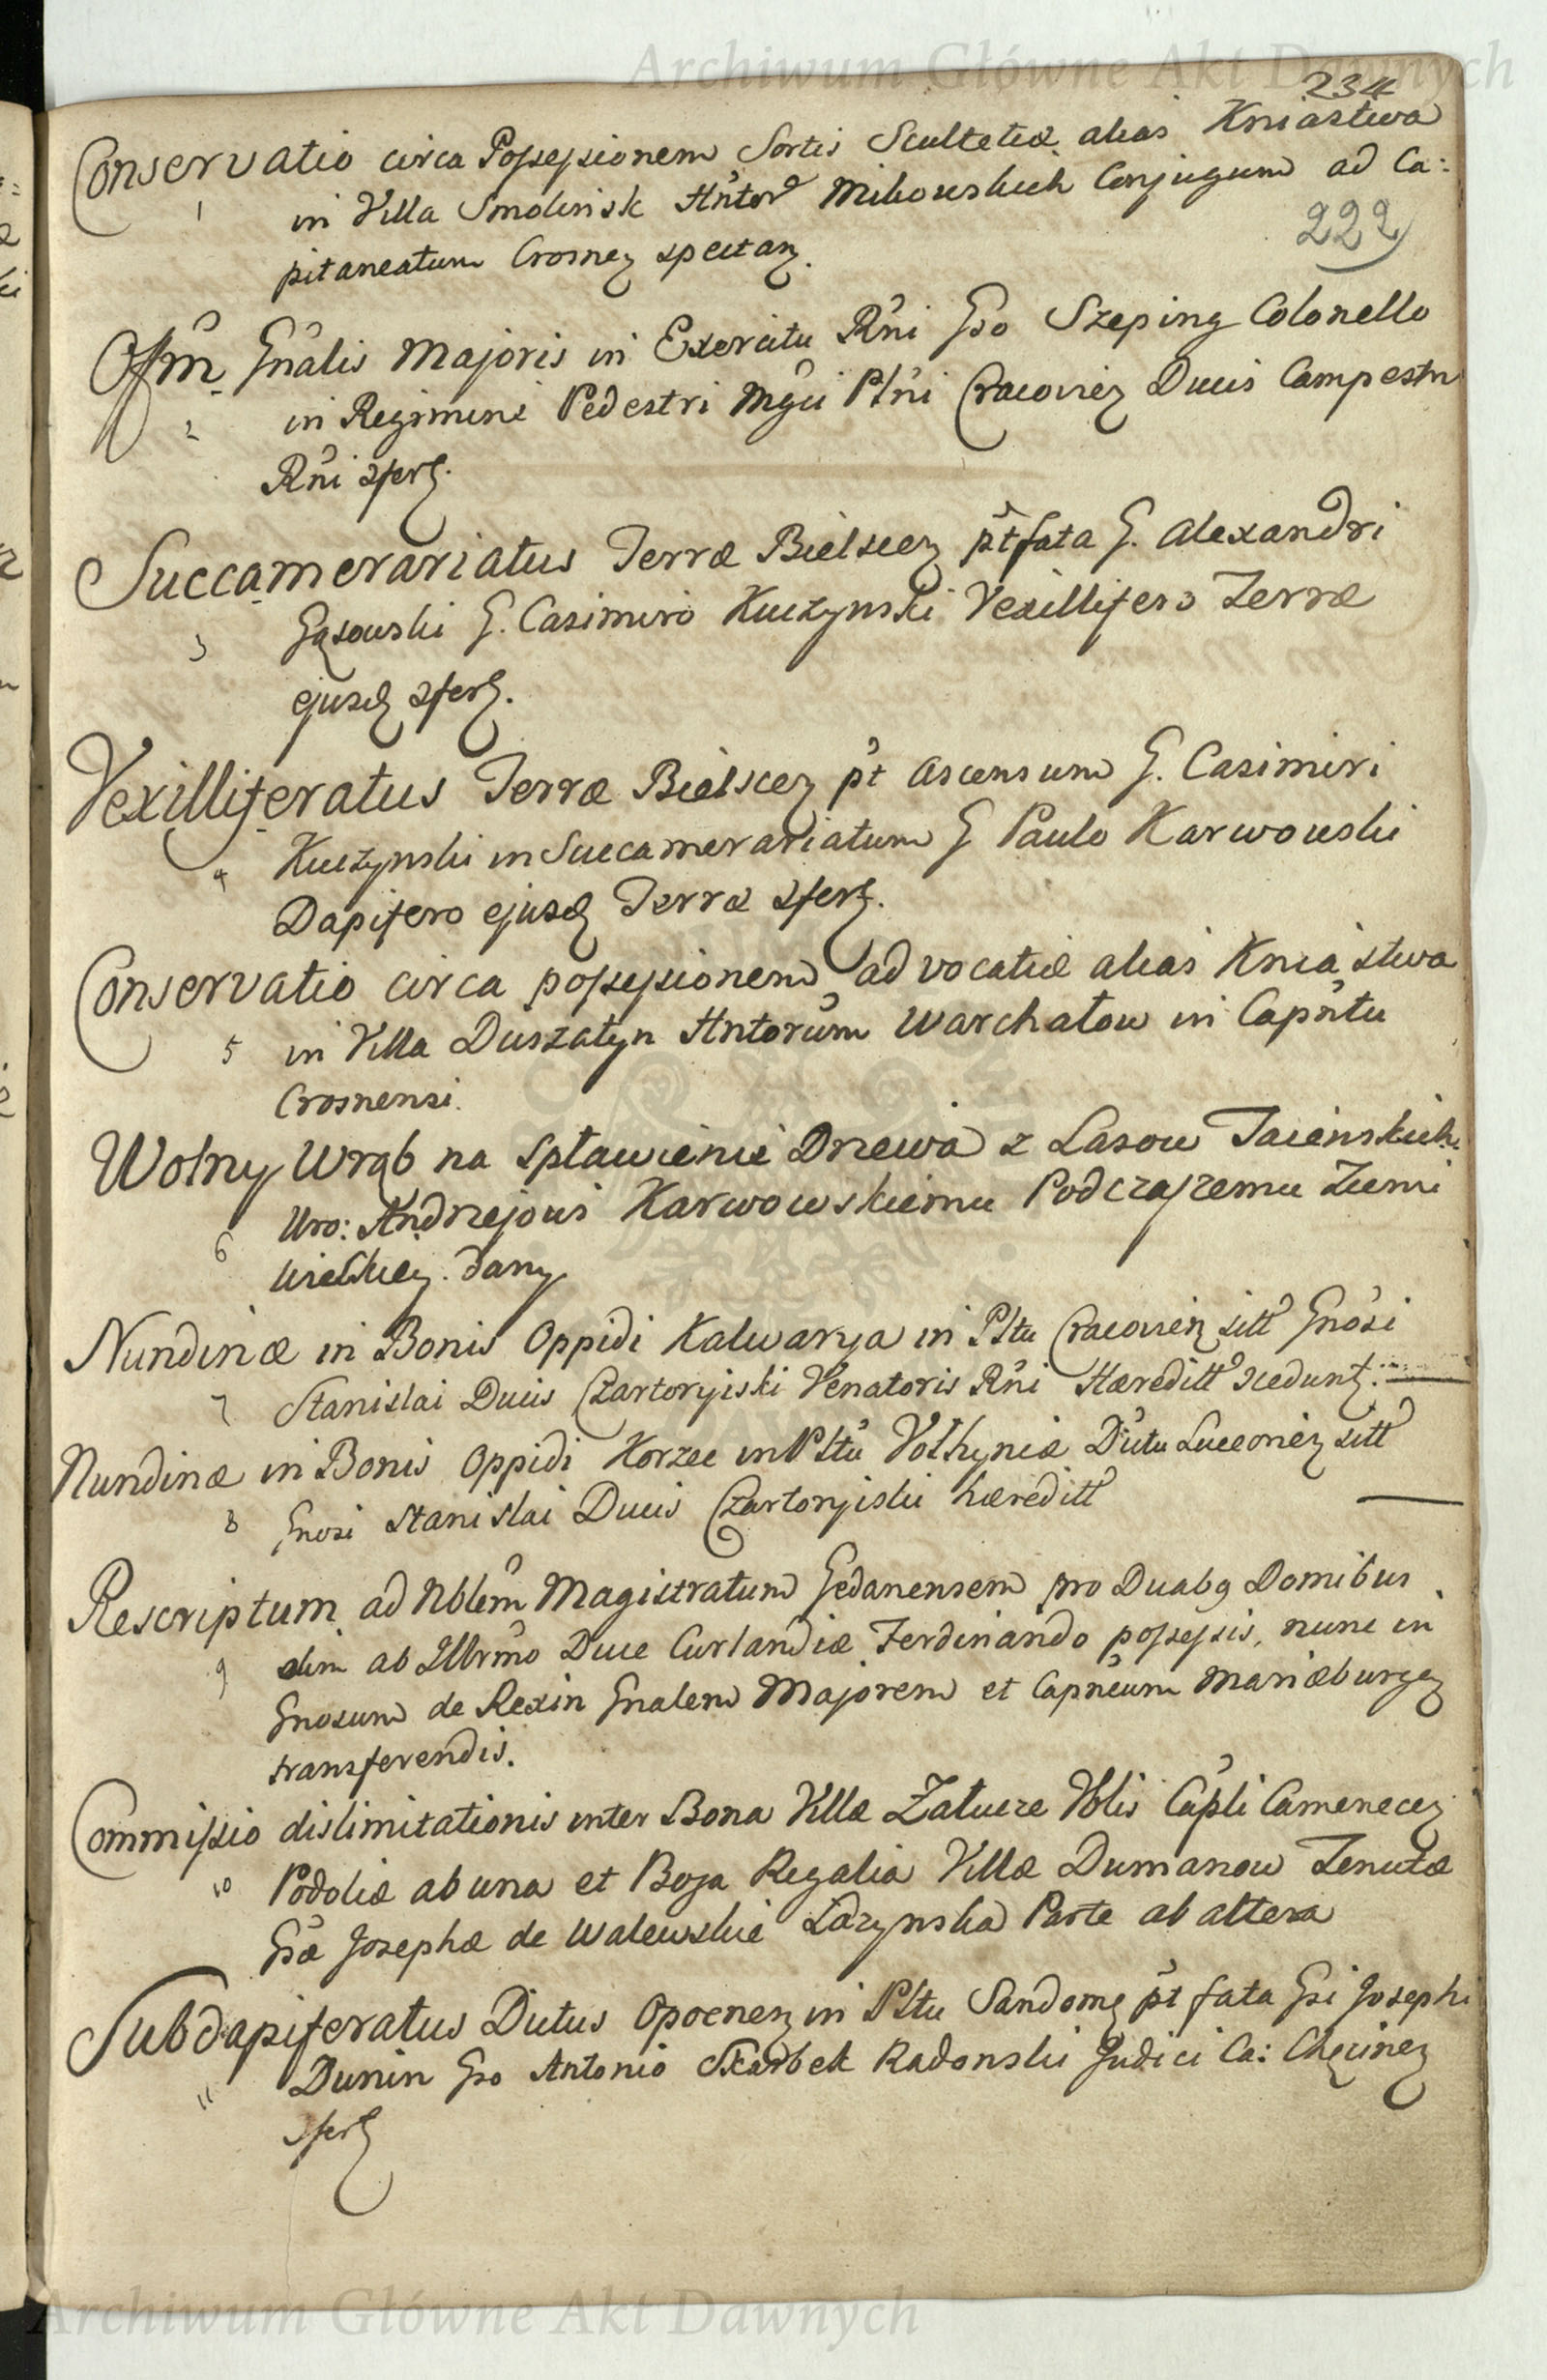 Archiwum Główne Akt Dawnych
234
Conservatio circa Possessionem Sortis Scultetiæ alias Kniastwa
1 in Villa Smolinsk Hntor Mikowskich Conjugum ad Ca:
222
pitaneatum Crosnen spectan.
Offm Gnalis Majoris in Exercitu Rni Gso Szeping Colonello
2 in Regimine Pedestri Mgci Plni Cracovien Ducis Campestri
Rni 2fert.
Succamerariatus Terræ Bielscen pt fata G. Alexandri
3 Gąsowski G. Casimiro Kuczynski Vexillifero Terræ
ejusd 2fert.
Vexilliferatus Terræ Bielscen pt Ascensum G. Casimiri
4 Kuczynski in Succamerariatum G Paulo Karwowski
Dapifero ejusd Terræ 2fert.
Conservatio circa possessionem advocatiæ alias Kniastwa
5 in Villa Duszatyn Hntorum Warchałow in Capntu
Crosnensi.
Wolny Wrąb na Spławienie Drzewa z Lasow Jaienskich
6 Uro: Andrzejowi Karwowskiemu Podczaszemu Ziemi
Wielskiey. dany
Nundinæ in Bonis Oppidi Kalwarya in Pltu Cracovien sitt Gnosi
7 Stanislai Ducis Czartoryiski Venatoris Rni Hæreditt 2cedunt.
Nundinæ in Bonis Oppidi Korzec in Pltu Volhyniæ Dittu Luceorien sitt
8 Gnosi Stanislai Ducis Czartoryiski hæreditt
Rescriptum ad Nblem Magistratum Gedanensem pro Duabg Domibus
9 olim ab Illrmo Duce Curlandiæ Ferdinando possessis, nunc in
Gnosum de Rexin Gnalem Majorem et Capneum Mariæburgen
transferendis.
Commissio dislimitationis inter Bona Villæ Załucze Vblis Capli Camenecen
10 Podoliæ ab una et Bona Regalia Villæ Dumanow Tenutæ
Gsæ Josephæ de Walewskie Łazynska Parte ab altera
Subdapiferatus Dittus Opocnen in Pltu Sandomi pt fata Gsi Josephi
11 Dunin Gso Antonio Skarbek Radonski Judici Ca: Chęcinen
2fert
Archiwum Główne Akt Dawnych